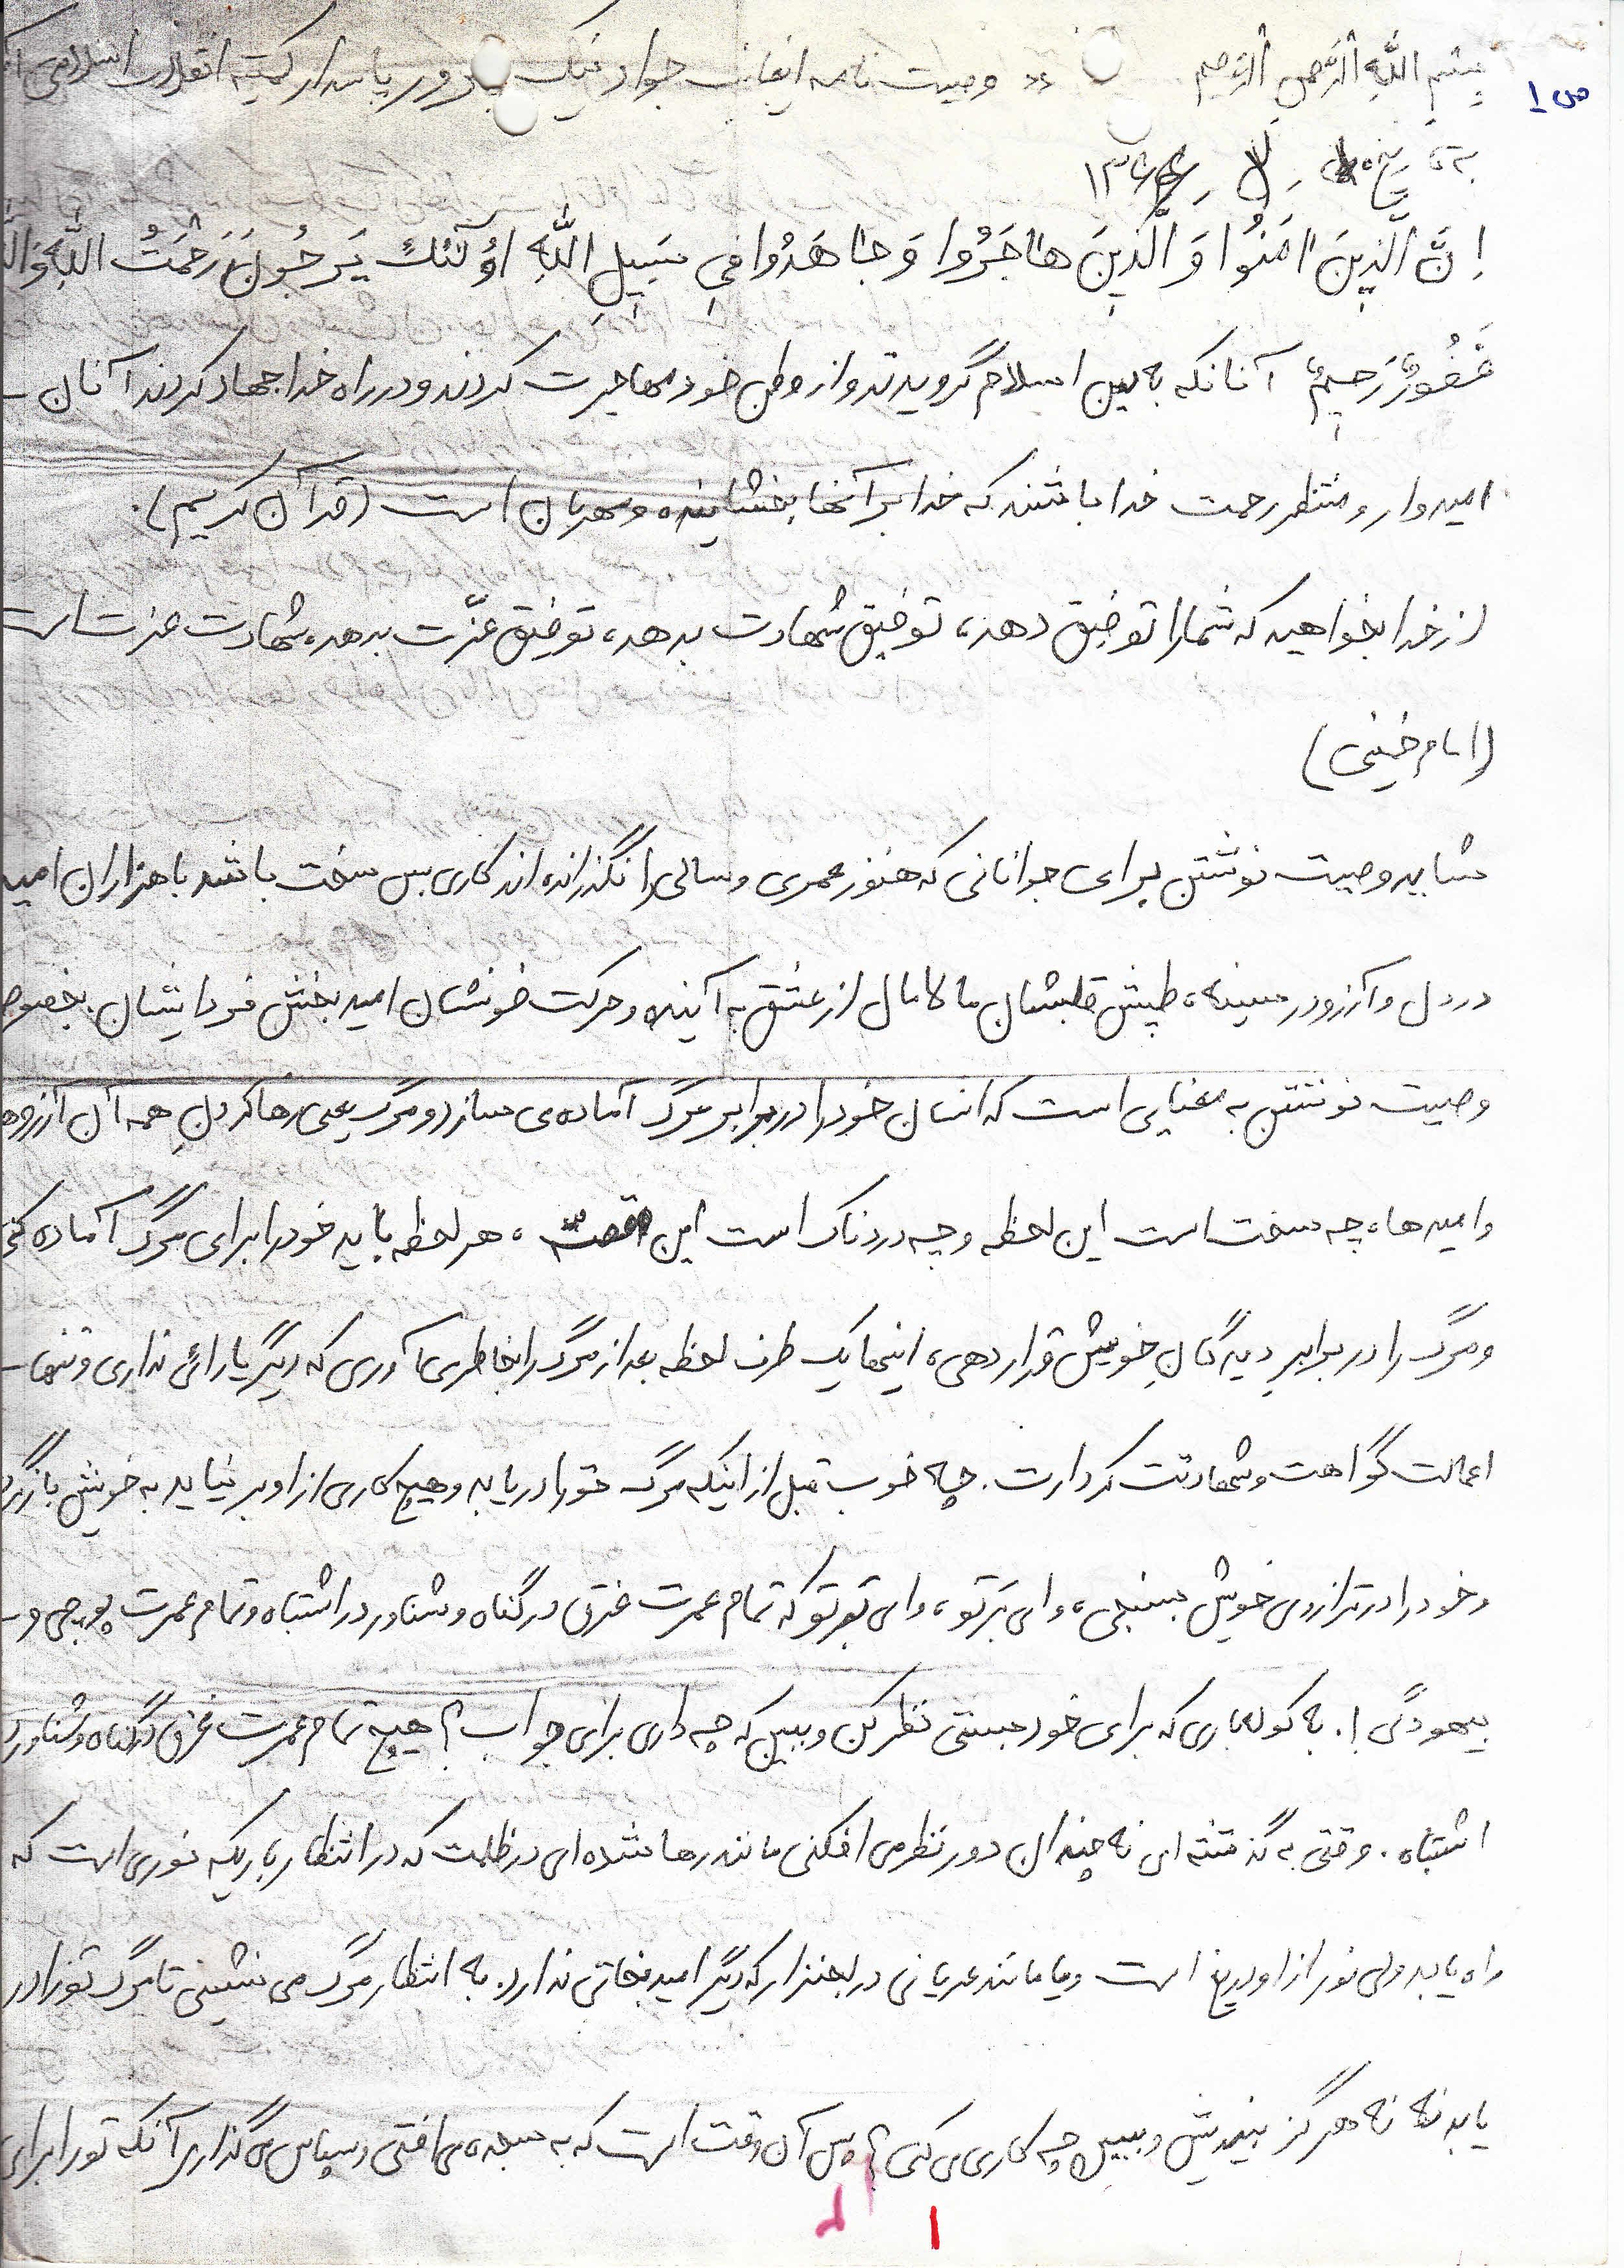 ص ۱
بِسْمِ اللهِ الرَّحمنِ الرَّحیمِ « وصیت نامه اینجانب جواد نیک پرور پاسدار کمیته انقلاب اسلامی
به تاریخ ۱۳۶۴
اِنَّ الَّذِینَ امَنُوا وَ الَّذِینَ هاجَرُوا وَ جاهَدُوا فِی سَبِیلِ اللهِ اوُلئکَ یَرجُونَ رَحْمَتُ اللهِ وَ الله
غَفُورٌ رَحِیمٌ آنانکه بدین اسلام گرویدند و از وطن خود مهاجرت کردند و در راه خدا جهاد کردند آنان
امیدوار و منتظر رحمت خدا باشند که خدا بر آنها بخشاینده و مهربان است (قرآن کریم).
از خدا بخواهید که شما را توفیق دهد، توفیق شهادت بدهد، توفیق عزّت بدهد، شهادت عزت است
(امام خمینی)
شاید وصیت نوشتن برای جوانانی که هنوز عمری و سالی را نگذرانده اند کاری بس سخت باشد با هزاران امید
در دل و آرزو در سینه، طپش قلبشان مالامال از عشق به آینده و حرکت خونشان امید بخش فردایشان. بخصوص
وصیت نوشتن به معنایی است که انسان خود را در برابر مرگ آماده می سازد و مرگ یعنی رها کردنِ همه آن آرزوها
و امیدها، چه سخت است این لحظه و چه دردناک است این قصّه، هر لحظه باید خود را برای مرگ آماده کنی
و مرگ را در برابرِ دیدگانِ خویش قرار دهی، اینها یک طرف لحظه بعد از مرگ را بخاطر می آوری که دیگر یارائی نداری و تنها
اعمالت گواهت و شهادتت کردارت. چه خوب قبل از اینکه مرگ تو را دریابد و هیچ کاری از او بر نیاید به خویش بازگردی
و خود را در ترازوی خویش بسنجی، وای بَر تو، وای بَر تو که تمام عمرت غرق در گناه و شناور در اشتباه و تمام عمرت پوچی و
بیهودگی!. به کوله باری که برای خود بستی نظر کن و ببین که چه داری برای جواب؟ هیچ تمام عمرت غرق در گناه و شناور در
اشتباه. وقتی به گذشته ای نه چندان دور نظر می افکنی مانند رها شده ای در ظلمت که در انتظار باریکه نوری است که
راه یابد ولی نور از او دریغ است و یا مانند عریانی در لجنزار که دیگر امید نجاتی ندارد. به انتظار مرگ می نشینی تا مرگ تو را در
یابد نه نه هرگز بیندیش و ببین چه کاری می کنی؟ پس آن وقت است که به سجده می افتی و سپاس می گذاری آنکه تو را برای
۱